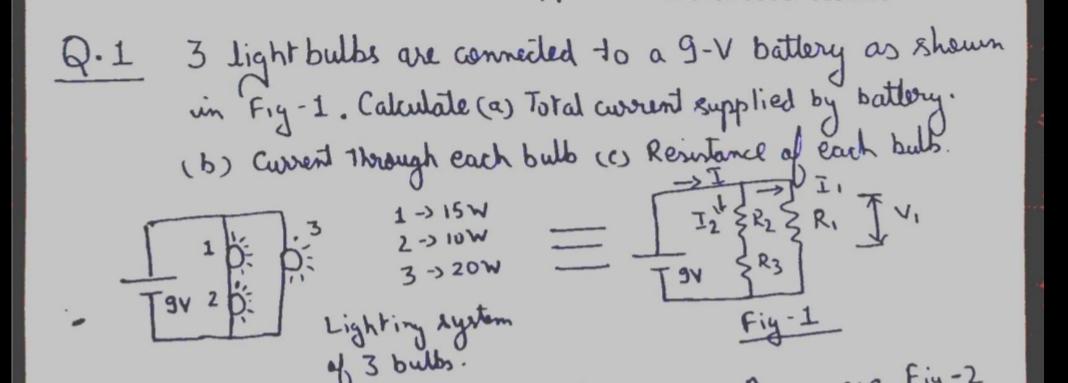 Q.1 3 light bulbs are connected to a 9-V battery as shown
in Fig-1. Calculate (a) Total current supplied by battery.
(b) Current through each bulb (c) Resistance of each bulb.
1 → 15W
2 → 10W
3 → 20W
1
2
3
9V
Lighting system
of 3 bulbs.
→ I
I1
I2
R2
R1
V1
R3
9V
Fig-1
Fig-2